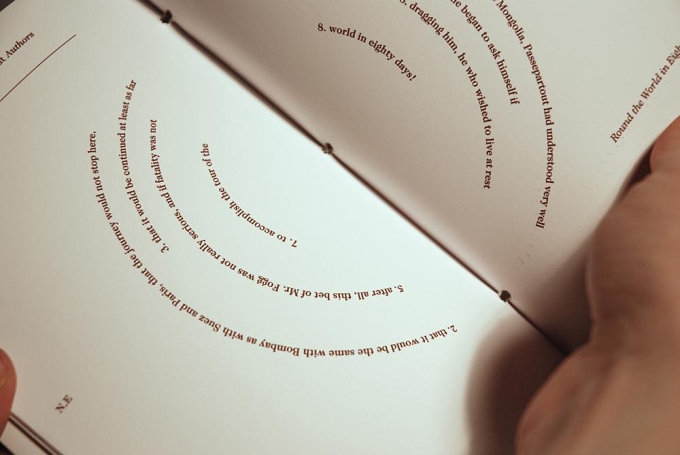 Authors
Mongolia, Passepartout had understood very well
2. that it would be the same with Bombay as with Suez and Paris, that the journey would not stop here,
3. that it would be continued at least as far
began to ask himself if
5. after all, this bet of Mr. Fogg was not really serious, and if fatality was not
dragging him, he who wished to live at rest
7. to accomplish the tour of the
8. world in eighty days!
Round the World in Eigh
N.E